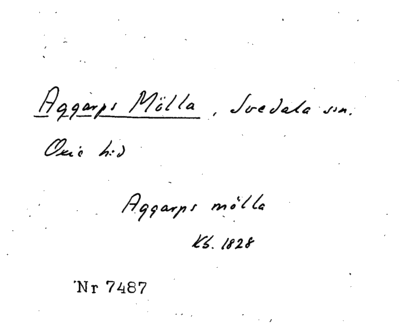 Aggarps Mölla, Svedala sn.
Oxie hd
Aggarps mölla
Kb. 1828
Nr 7487